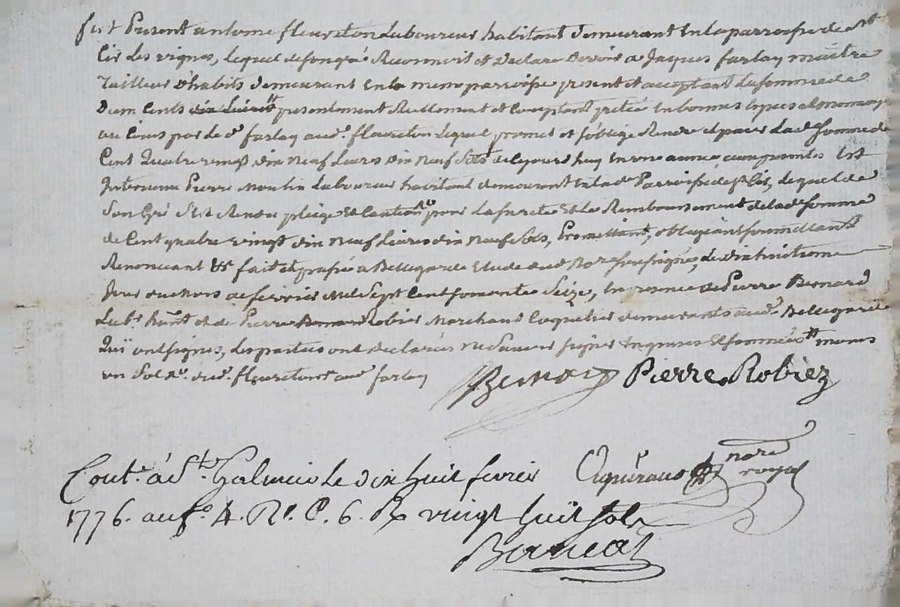 fut Present antoine fleureton Laboureur habitant demeurant En la parroisse de St
Cir des vignes, Lequel de son gré Reconnoit et Declare Devoir a Jaques farlay maître
tailleur d'habits demeurant En la meme paroisse present et acceptant La somme de
Deux Cents presentement Reellement et Comptant pretée En bonnes Especes
au Cours par le d. farlay aud. fleureton Lequel promet et s'oblige Rendre et payer Lad. somme de
Cent Quatre vingt dix neuf Livres dix neuf sols de ce jourd'huy En une année Est
Intervenu Pierre Moulin Laboureur habitant demeurant En lad. Parroisse de St Cir, Lequel de
son Gré s'est Rendu pleige Et Caution pour La surete Et Le Remboursement de lad. somme
de Cent quatre vingt dix neuf Livres dix neuf sols, Promettant, obligeant soumettant
Renonçant &c fait et passé a Bellegarde Etude dud. No.re soussigné, Le dixhuitieme
Jour du mois de fevrier Mil Sept Cent soixante Seize, En presence de Pierre Bernard
Lab.r hant et de Pierre Robier Marchand Coquetier demeurants aud. Bellegarde
Qui ont signés, Les parties ont declarées ne Scavoir signer Enquises Et sommées
un Sol d. aud. fleureton aud. farlay
Bernard Pierre Robiez
Cont.e à St. Galmier Le dix huit fevrier nore royal
1776. au fo. 4. Ro. C. 6. R vingt huit sols